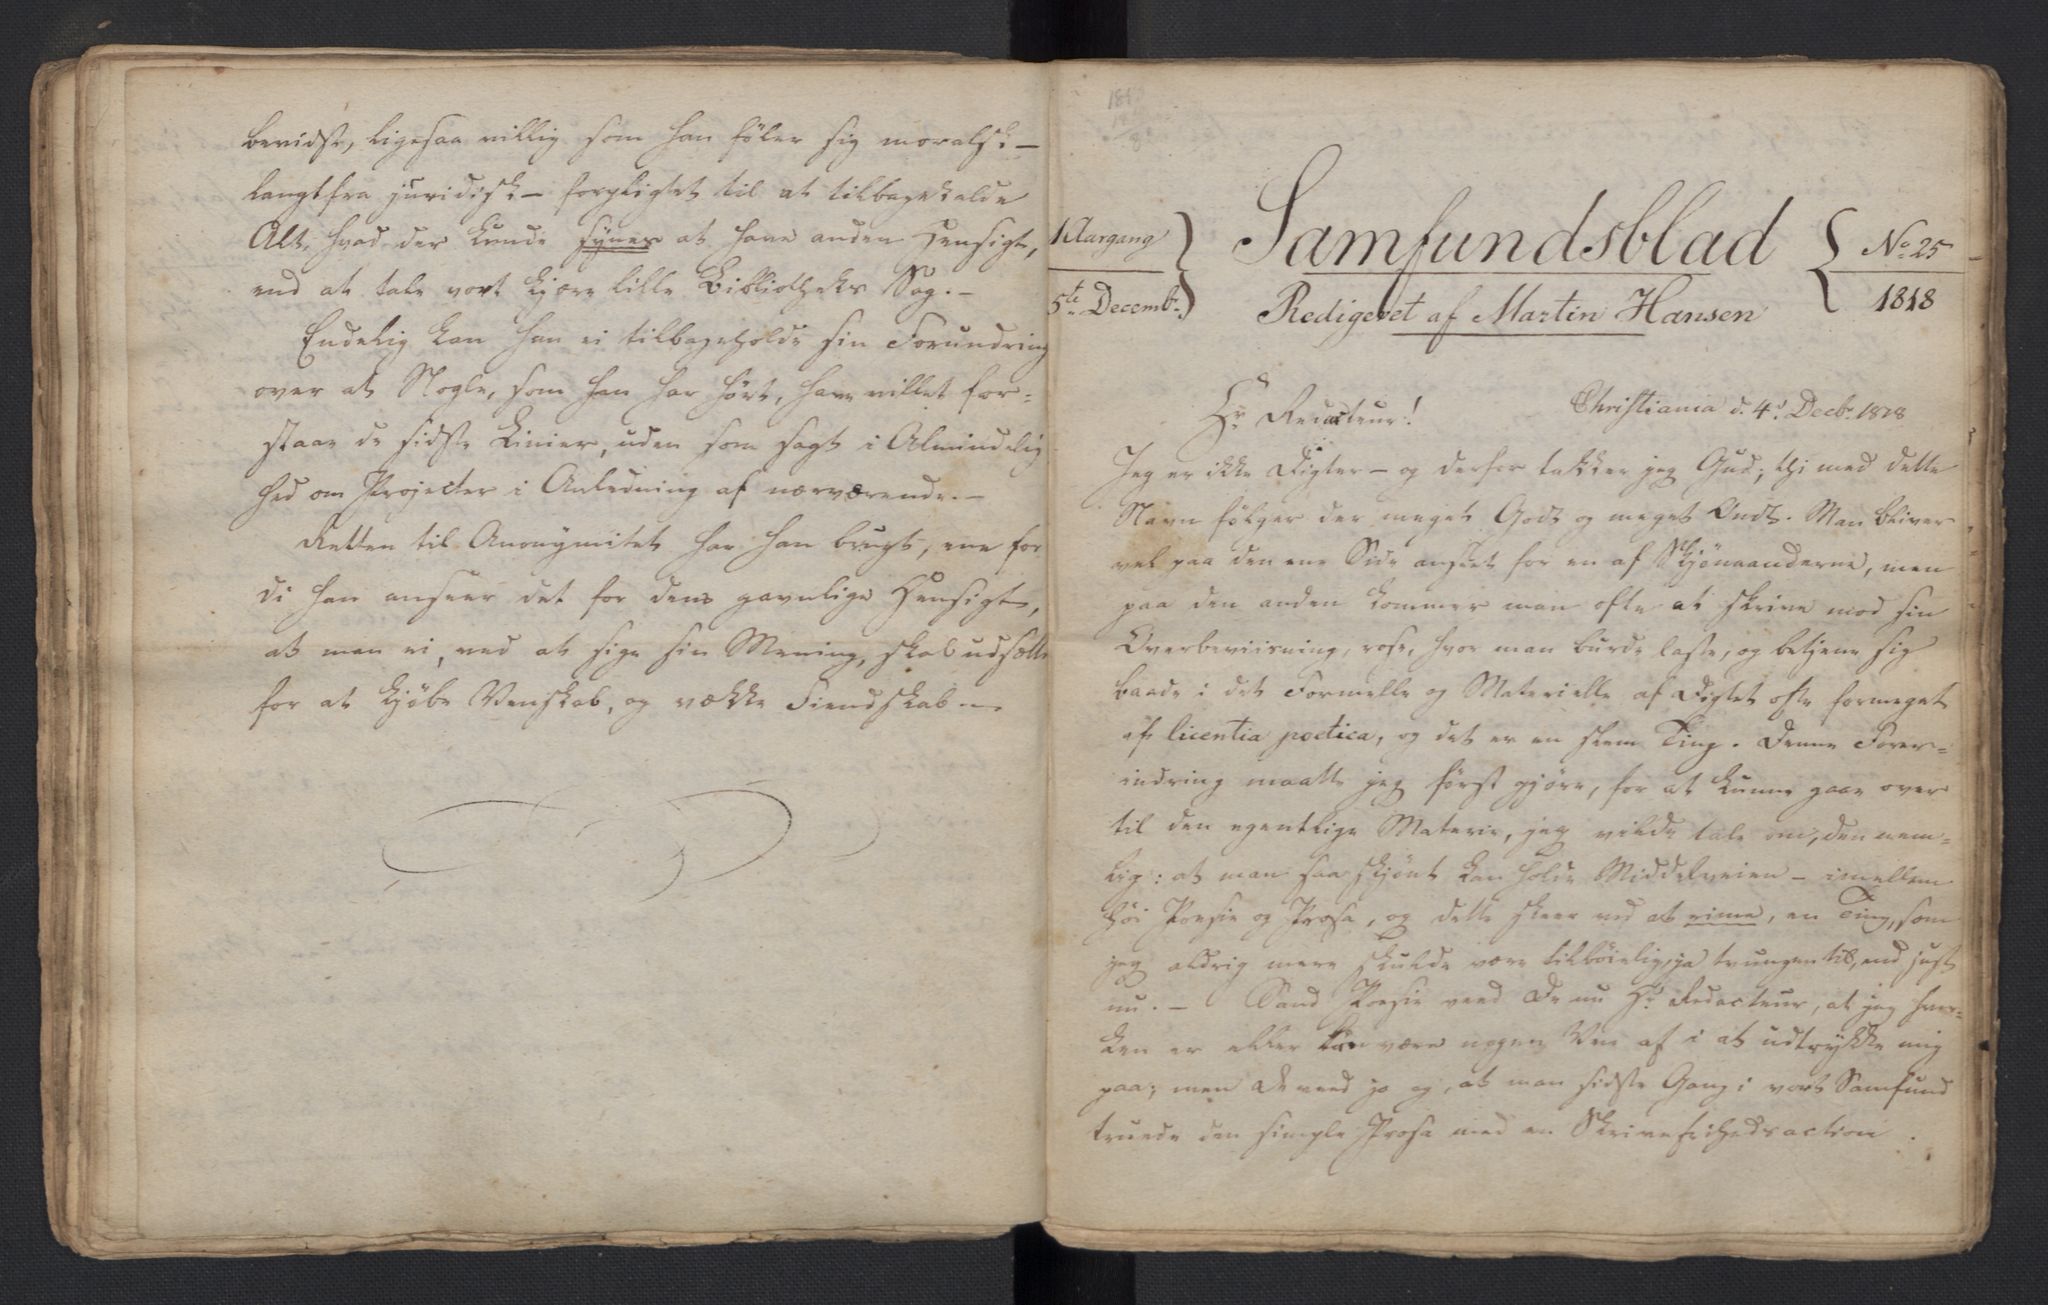 bevidst, ligesaa villig som han føler sig moralsk –
langtfra juridisk – forpligtet til at tilbagekalde
Alt, hvad der kunde synes at have anden Hensigt,
end at tale vort kjære lille Bibliotheks Sag. –
Endelig kan han ei tilbageholde sin Forundring
over at Nogle, som han har hørt, have villet for=
staae de sidste Linier, uden som sagt i Almindelig
hed om Projecter i Anledning af nærværende. –
Retten til Anonymitet har han brugt, ene for
di han anseer det for dens gavnlige Hensigt,
at man ei, ved at sige sin Mening, skal udsætte
for at kjøbe Venskab, og vække Fiendskab. –
1 Aargang
5te Decembr
Samfundsblad
Redigeret af Martin Hansen
No 25
1818
Christiania d. 4d Decbr 1818
Hr Redacteur!
Jeg er ikke Digter – og derfor takker jeg Gud; thi med dette
Navn følger der meget Godt og meget Ondt. Man bliver
vel paa den ene Side anseet for en af Skjønaanderne, men
paa den anden kommer man ofte at skrive mod sin
Overbeviisning, rose, hvor man burde laste, og betjene sig
baade i det Formelle og Materielle af Digtet ofte formeget
af licentia poetica, og det er en slem Ting. Denne Forer=
indring maatte jeg først gjøre, for at kunne gaae over
til den egentlige Materie, jeg vilde tale om, den nem=
lig: at man saa skjønt kan holde Middelveien – imellem
høi Poesie og Prosa, og dette skeer ved at rime, en Ting, som
jeg aldrig mere skulde være tilbøielig, ja tvungen til, end just
nu. – Sand Poesie veed De nu Hr Redacteur, at jeg hver=
ken er eller kan være nogen Ven af i at udtrykke mig
paa; men De veed jo og, at man sidste Gang i vort Samfund
truede den simple Prosa med en Skrivefrihedsaction.